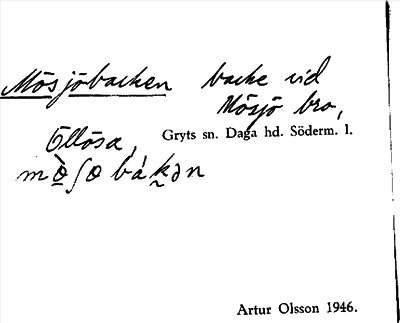 Mösjöbacken backe vid
Mösjö bro,
Öllösa, Gryts sn. Daga hd. Söderm. l.
mö̀ʃö bákən
Artur Olsson 1946.